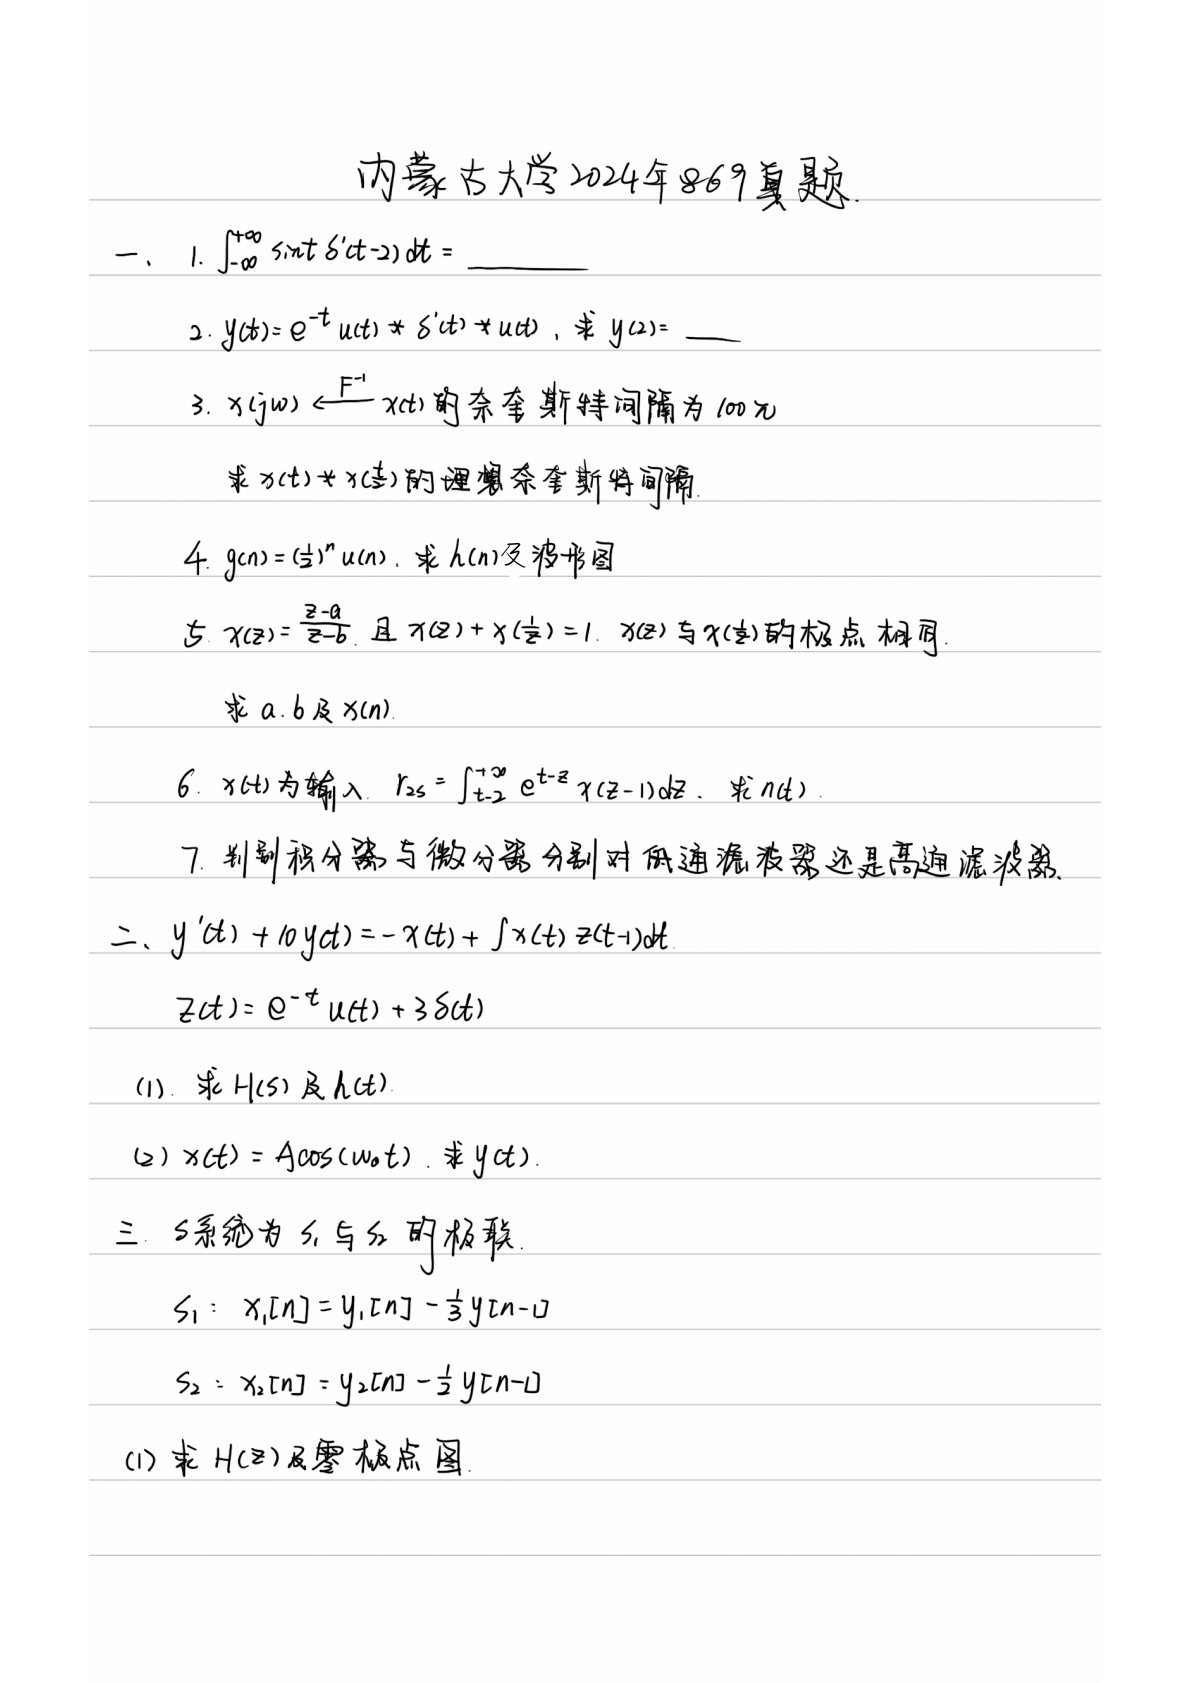 内蒙古大学2024年869真题.
一、 1. ∫_{-∞}^{+∞} sint δ'(t-2) dt = ______
2. y(t) = e^{-t} u(t) * δ'(t) * u(t), 求 y(2)= ___
3. x(jw) ⟵^{F^{-1}} x(t) 的奈奎斯特间隔为 100π
求 x(t) * x(t/2) 的理想奈奎斯特间隔.
4. g(n) = (1/2)^n u(n). 求 h(n) 及波形图
5. x(z) = (z-a)/(z-b). 且 x(z) + x(1/z) = 1. x(z) 与 x(1/z) 的极点相同.
求 a.b 及 x(n).
6. x(t) 为输入. r_{zs} = ∫_{t-2}^{+∞} e^{t-z} x(z-1) dz. 求 h(t).
7. 判别积分器与微分器分别对低通滤波器还是高通滤波器.
二、 y'(t) + 10y(t) = -x(t) + ∫x(t) z(t-1)dt.
z(t) = e^{-t} u(t) + 3δ(t)
(1). 求 H(s) 及 h(t).
(2) x(t) = Acos(w₀t). 求 y(t).
三. S系统为 S₁ 与 S₂ 的极联.
S₁: x₁[n] = y₁[n] - 1/3 y[n-1]
S₂: x₂[n] = y₂[n] - 1/2 y[n-1]
(1) 求 H(z) 及零极点图.